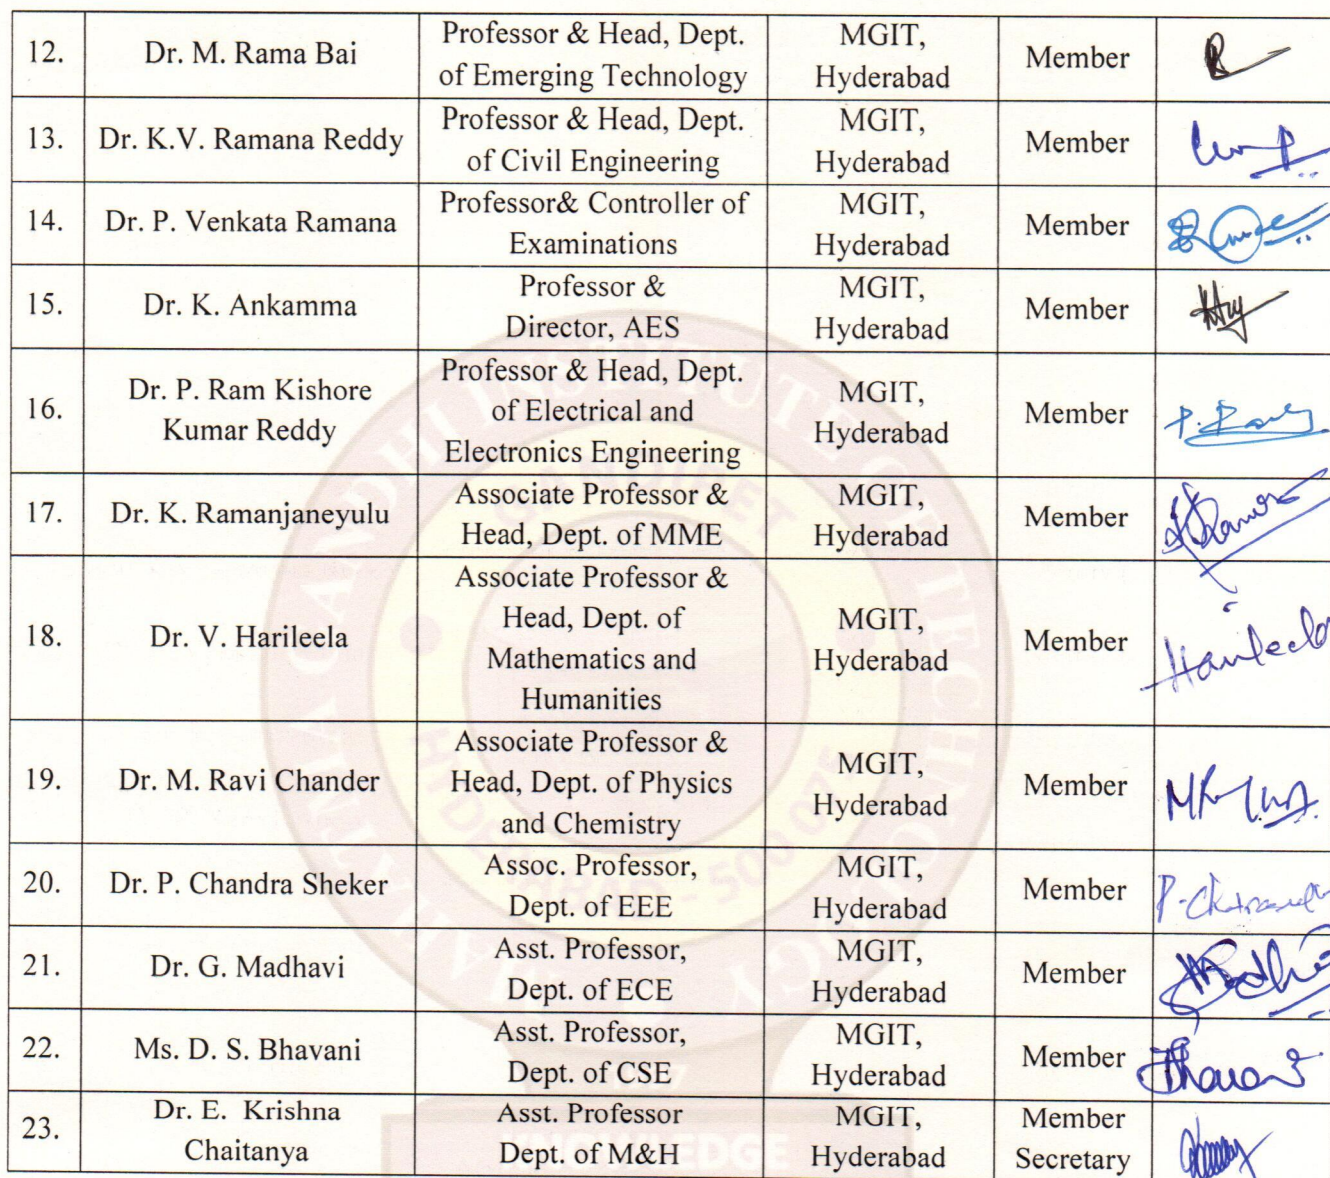 12. Dr. M. Rama Bai Professor & Head, Dept. of Emerging Technology MGIT, Hyderabad Member
13. Dr. K.V. Ramana Reddy Professor & Head, Dept. of Civil Engineering MGIT, Hyderabad Member
14. Dr. P. Venkata Ramana Professor& Controller of Examinations MGIT, Hyderabad Member
15. Dr. K. Ankamma Professor & Director, AES MGIT, Hyderabad Member
16. Dr. P. Ram Kishore Kumar Reddy Professor & Head, Dept. of Electrical and Electronics Engineering MGIT, Hyderabad Member
17. Dr. K. Ramanjaneyulu Associate Professor & Head, Dept. of MME MGIT, Hyderabad Member
18. Dr. V. Harileela Associate Professor & Head, Dept. of Mathematics and Humanities MGIT, Hyderabad Member Harileela
19. Dr. M. Ravi Chander Associate Professor & Head, Dept. of Physics and Chemistry MGIT, Hyderabad Member
20. Dr. P. Chandra Sheker Assoc. Professor, Dept. of EEE MGIT, Hyderabad Member
21. Dr. G. Madhavi Asst. Professor, Dept. of ECE MGIT, Hyderabad Member
22. Ms. D. S. Bhavani Asst. Professor, Dept. of CSE MGIT, Hyderabad Member
23. Dr. E. Krishna Chaitanya Asst. Professor Dept. of M&H MGIT, Hyderabad Member Secretary
MAHATMA GANDHI INSTITUTE OF TECHNOLOGY
GANDIPET
HYDERABAD - 500 075
KNOWLEDGE